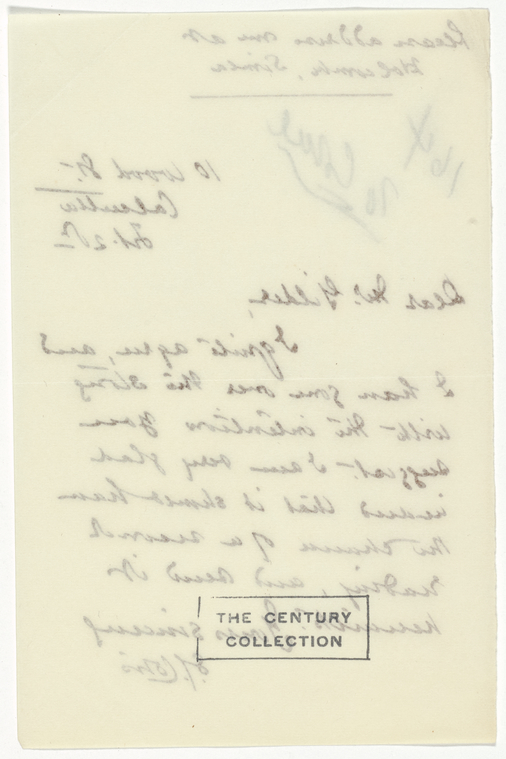 Please address me at
Holcombe, Simla
10 Wood St.
Calcutta
Dear Mr. Gilder,
I quite agree, and
I have gone over the story
with the intention you
suggest. I am very glad
indeed that it should have
the chance of a second
reading, and send it
herewith. Yours sincerely
THE CENTURY
COLLECTION